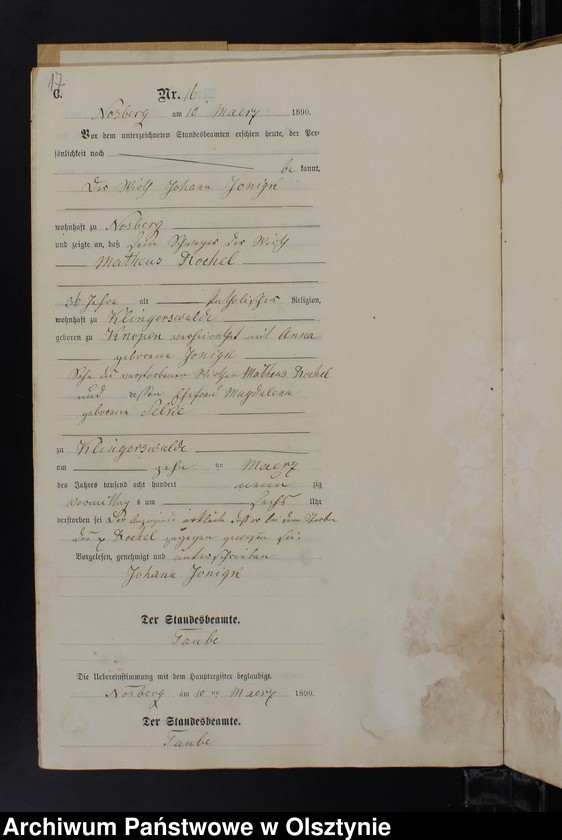 17
C.
Nr. 16
Nosberg am 10 ten Maerz 1890.
Vor dem unterzeichneten Standesbeamten erschien heute, der Per-
sönlichkeit nach
be kannt,
Der Wirth Johann Jonigk
wohnhaft zu Nosberg
und zeigte an, daß sein Schwager der Wirth
Matheus Rochel
36 Jahre alt katholischer Religion,
wohnhaft zu Klingerswalde
geboren zu Knopen verheirathet mit Anna
geborene Jonigk
Sohn des verstorbenen Wirthen Matheus Rochel
und dessen Ehefrau Magdalena
geborene
zu Klingerswalde
am zehn ten Maerz
des Jahres tausend acht hundert neun zig
Vormittag s um sechs Uhr
verstorben sei Der Anzeigende erklärte daß er bei dem Tode
des p. Rochel zugegen gewesen sei.
Vorgelesen, genehmigt und unterschrieben
Johann Jonigk
Der Standesbeamte.
Taube
Die Uebereinstimmung mit dem Hauptregister beglaubigt.
Nosberg am 10 ten Maerz 1890.
Der Standesbeamte.
Taube
Archiwum Państwowe w Olsztynie